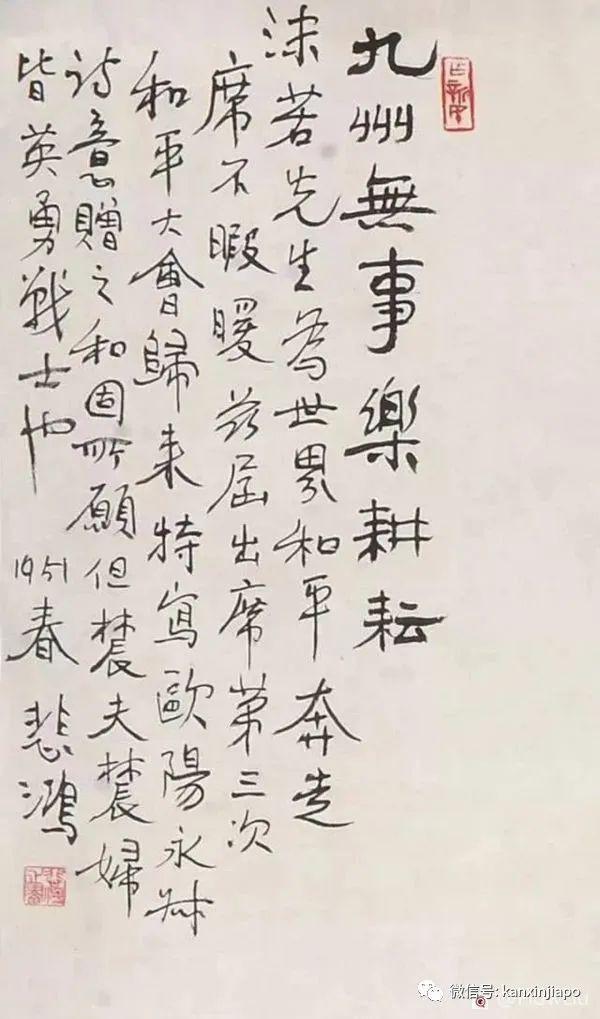 九州無事樂耕耘
沫若先生為世界和平奔走
席不暇暖茲屆出席第三次
和平大會歸来特寫歐陽永叔
詩意贈之和固所願但辳夫辳婦
皆英勇戰士也 1951春 悲鴻
微信号: kanxinjiapo